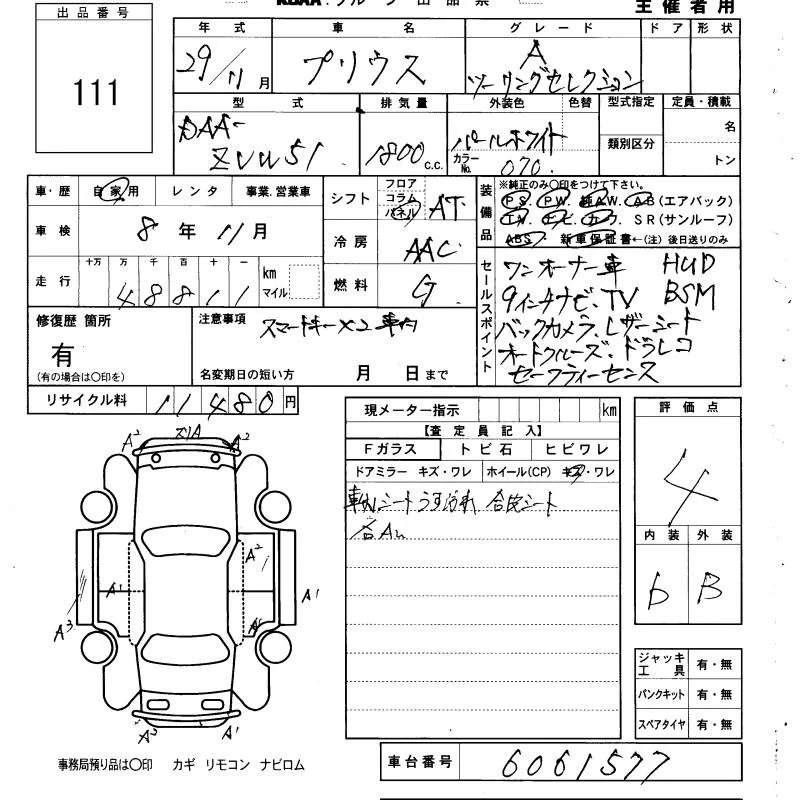 出品番号
111
主催者用
年式 車名 グレード ドア 形状
29/11月 プリウス A ツーリングセレクション
型式 排気量 外装色 色替 型式指定 定員・積載
DAA-ZVW51 1800 c.c. パールホワイト カラーNo. 070 類別区分 名 トン
車・歴 自家用 レンタ 事業.営業車
車検 8年 11月
走行 十万 万 千 百 十 一 km マイル
48811
シフト フロア コラム パネル AT
冷房 AAC
燃料 G
装備品
※純正のみ○印をつけて下さい。
PS. PW. 純AW. AB(エアバック)
SR(サンルーフ)
ABS 新車保証書←(注)後日送りのみ
セールスポイント
ワンオーナー車 HUD
9インチナビ、TV BSM
バックカメラ、レザーシート
オートクルーズ、ドラレコ
セーフティーセンス
修復歴 箇所
有
(有の場合は○印を)
注意事項 スマートキー×2車内
名変期日の短い方 月 日まで
リサイクル料 11480円
現メーター指示 km
【査定員記入】
Fガラス トビ石 ヒビワレ
ドアミラー キズ・ワレ ホイール(CP) キズ・ワレ
シートうすよごれ 合皮シート
評価点
4
内装 外装
b B
A2 A2
A2
A1 A1
A3
A3 A1
ジャッキ工具 有・無
パンクキット 有・無
スペアタイヤ 有・無
事務局預り品は○印 カギ リモコン ナビロム
車台番号 6061577